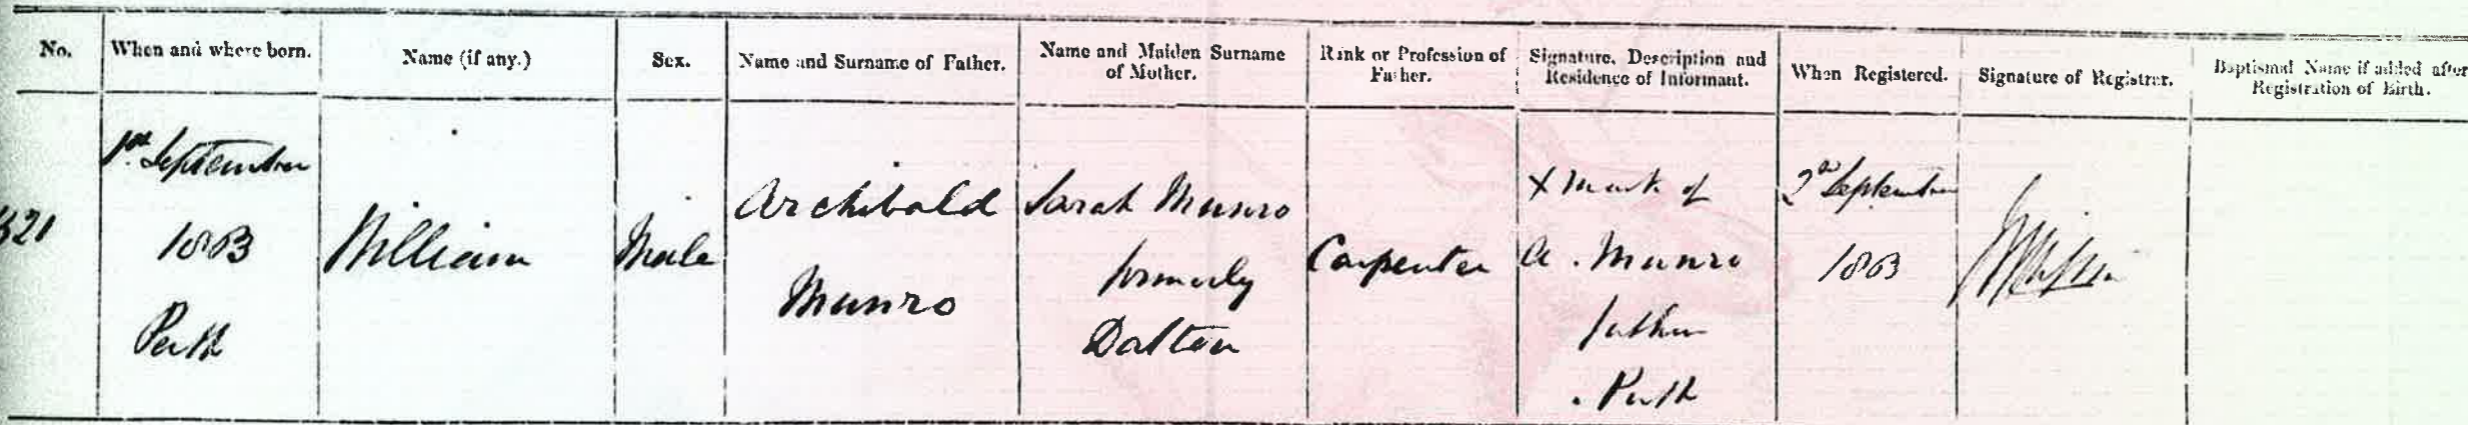 No.
When and where born.
Name (if any.)
Sex.
Name and Surname of Father.
Name and Maiden Surname
of Mother.
Rank or Profession of
Father.
Signature, Description and
Residence of Informant.
When Registered.
Signature of Registrar.
Baptismal Name if added after
Registration of Birth.
1st September
1863
Perth
William
Male
Archibald
Munro
Sarah Munro
formerly
Dalton
Carpenter
X Mark of
A. Munro
father
Perth
2nd September
1863